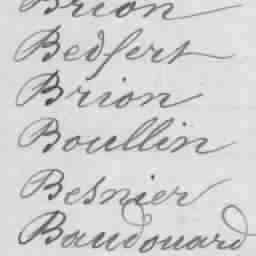 Brion
Bedfert
Brion
Boullin
Besnier
Baudouard